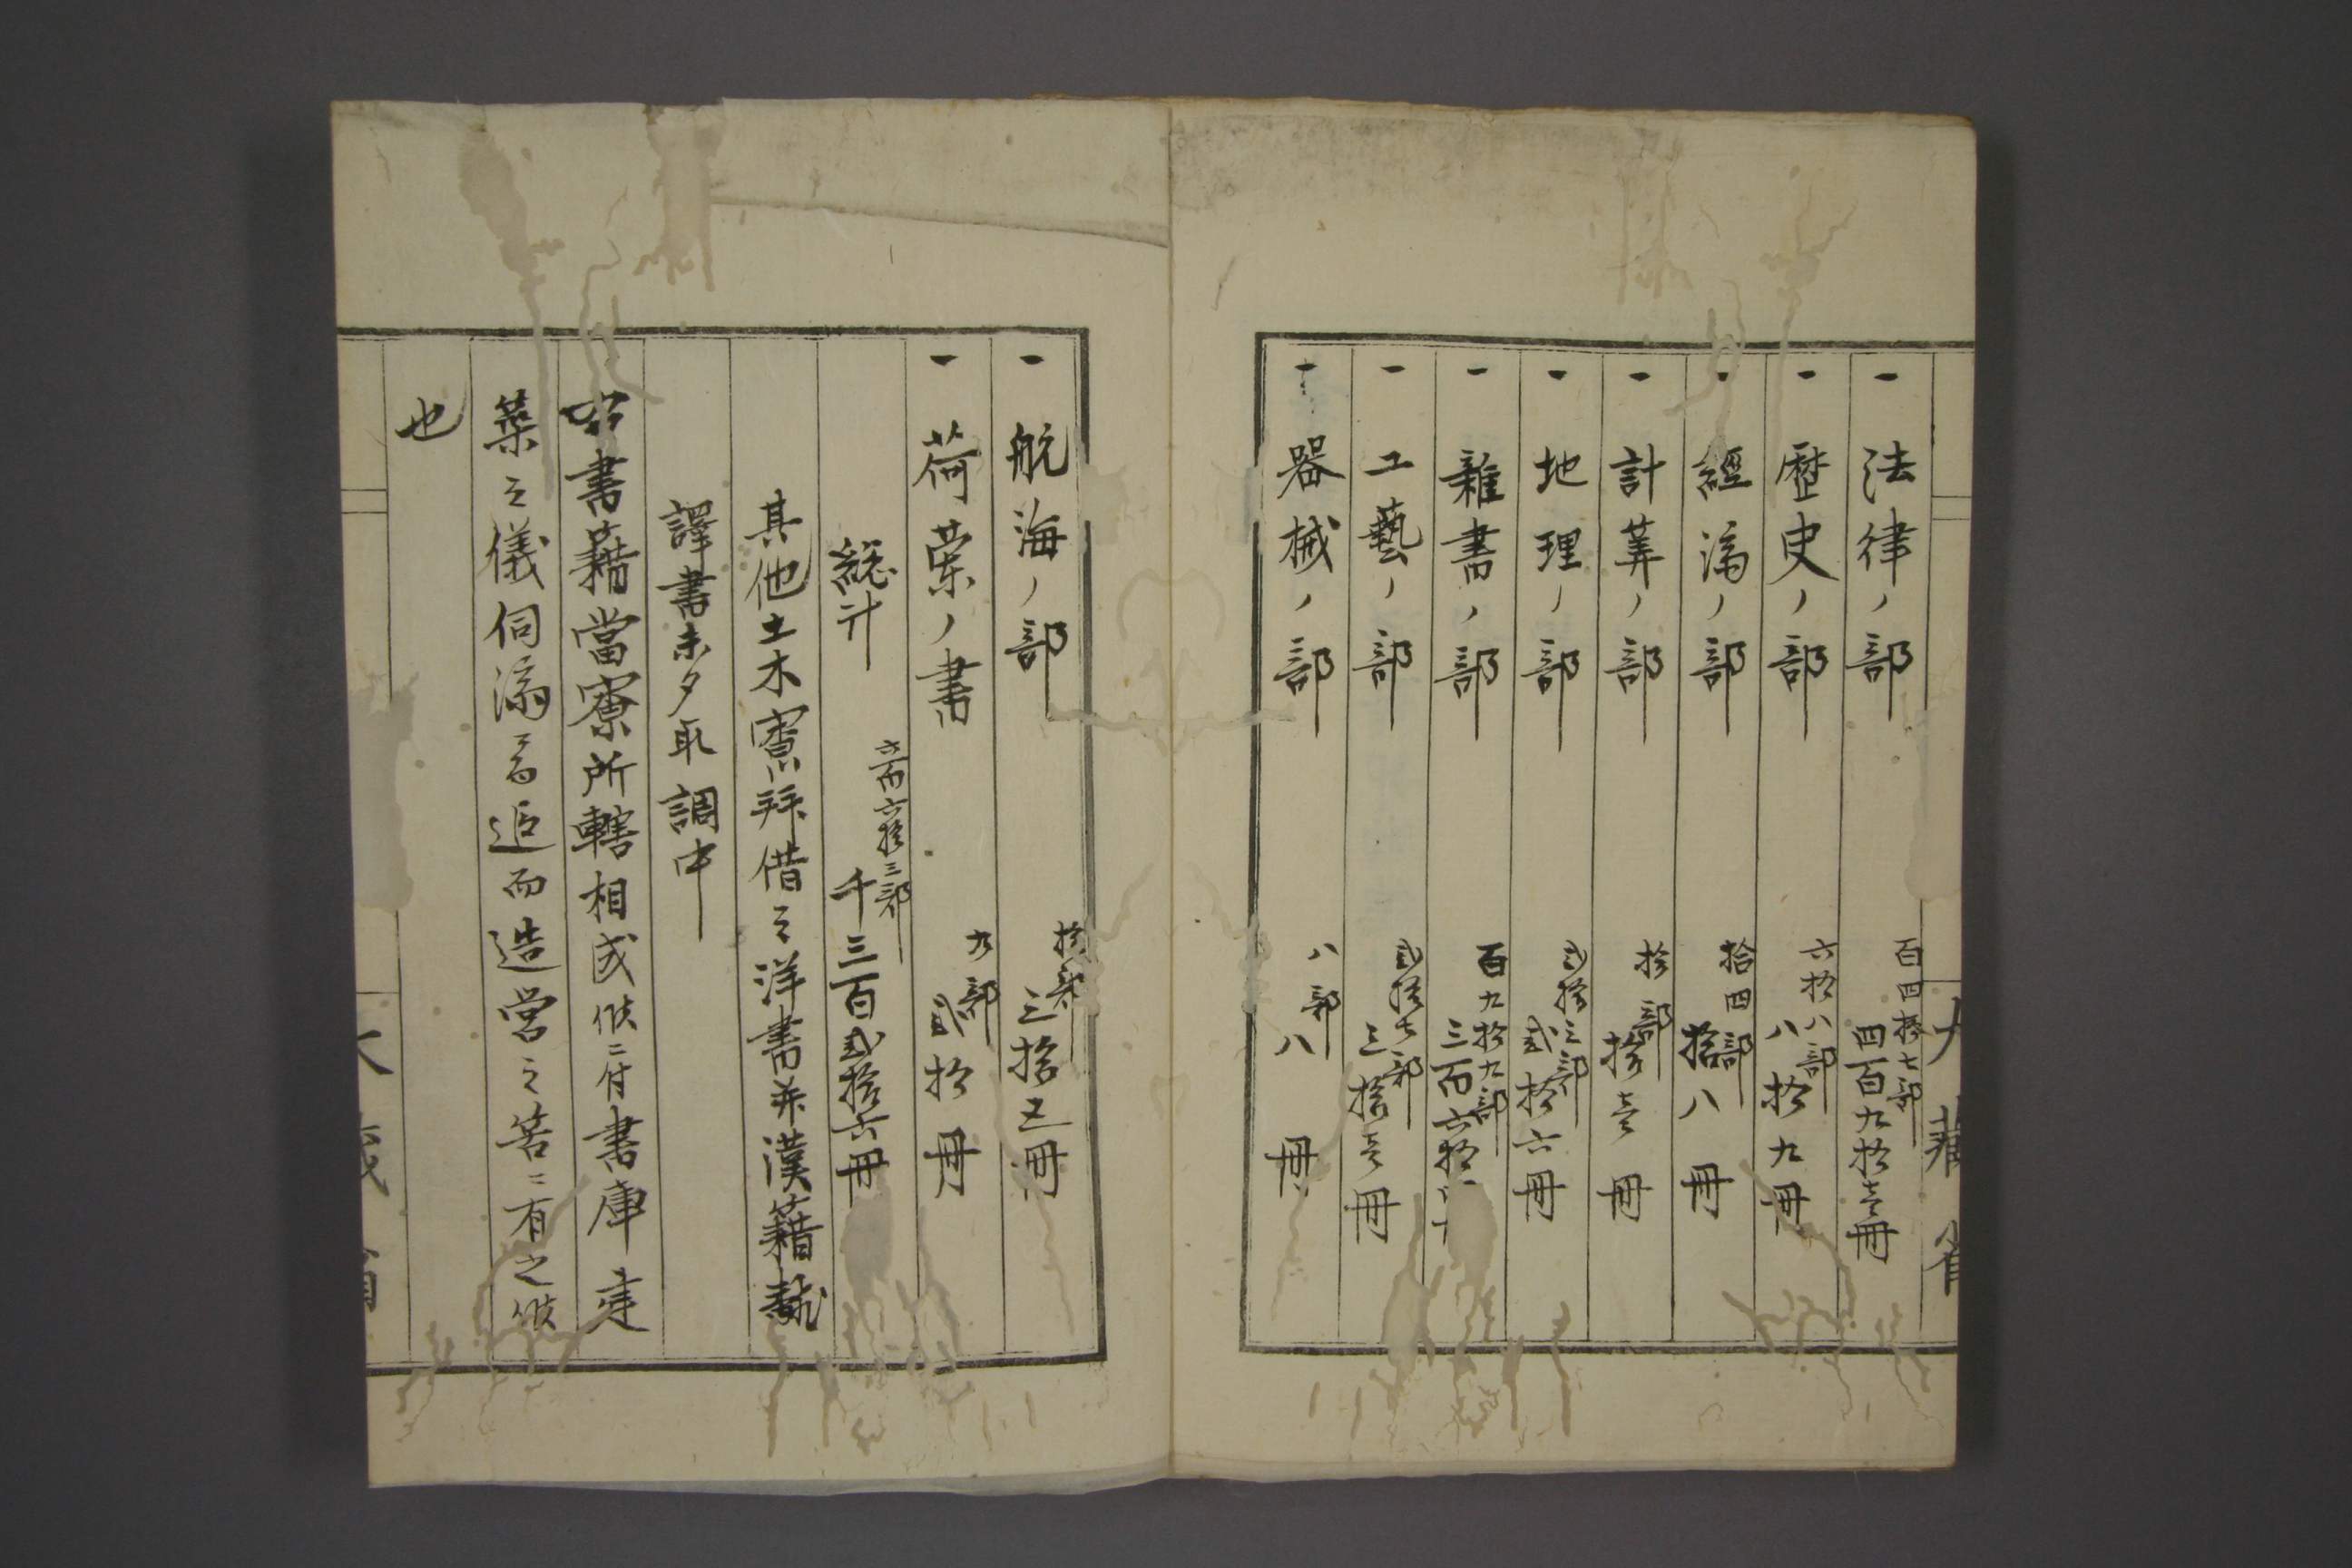 大藏省
一 法律ノ部 百四拾七部 四百九拾壹冊
一 歴史ノ部 六拾八部 八拾九冊
一 經濟ノ部 拾四部 拾八冊
一 計筭ノ部 拾部 拾壹冊
一 地理ノ部 貳拾三部 貳拾六冊
一 雜書ノ部 百九拾九部 三百六拾
一 工藝ノ部 貳拾七部 三拾壹冊
一 器械ノ部 八部 八冊
一 航海ノ部 拾部 三拾五冊
一 荷蘭ノ書 九部 貳拾冊
總計 六百六拾三部 千三百貳拾六冊
其他土木寮拜借之洋書并漢籍飜
譯書未タ取調中
書籍當寮所轄相成候ニ付書庫建
築之儀伺濟ニ而追而造営之筈ニ有之候
也
大藏省